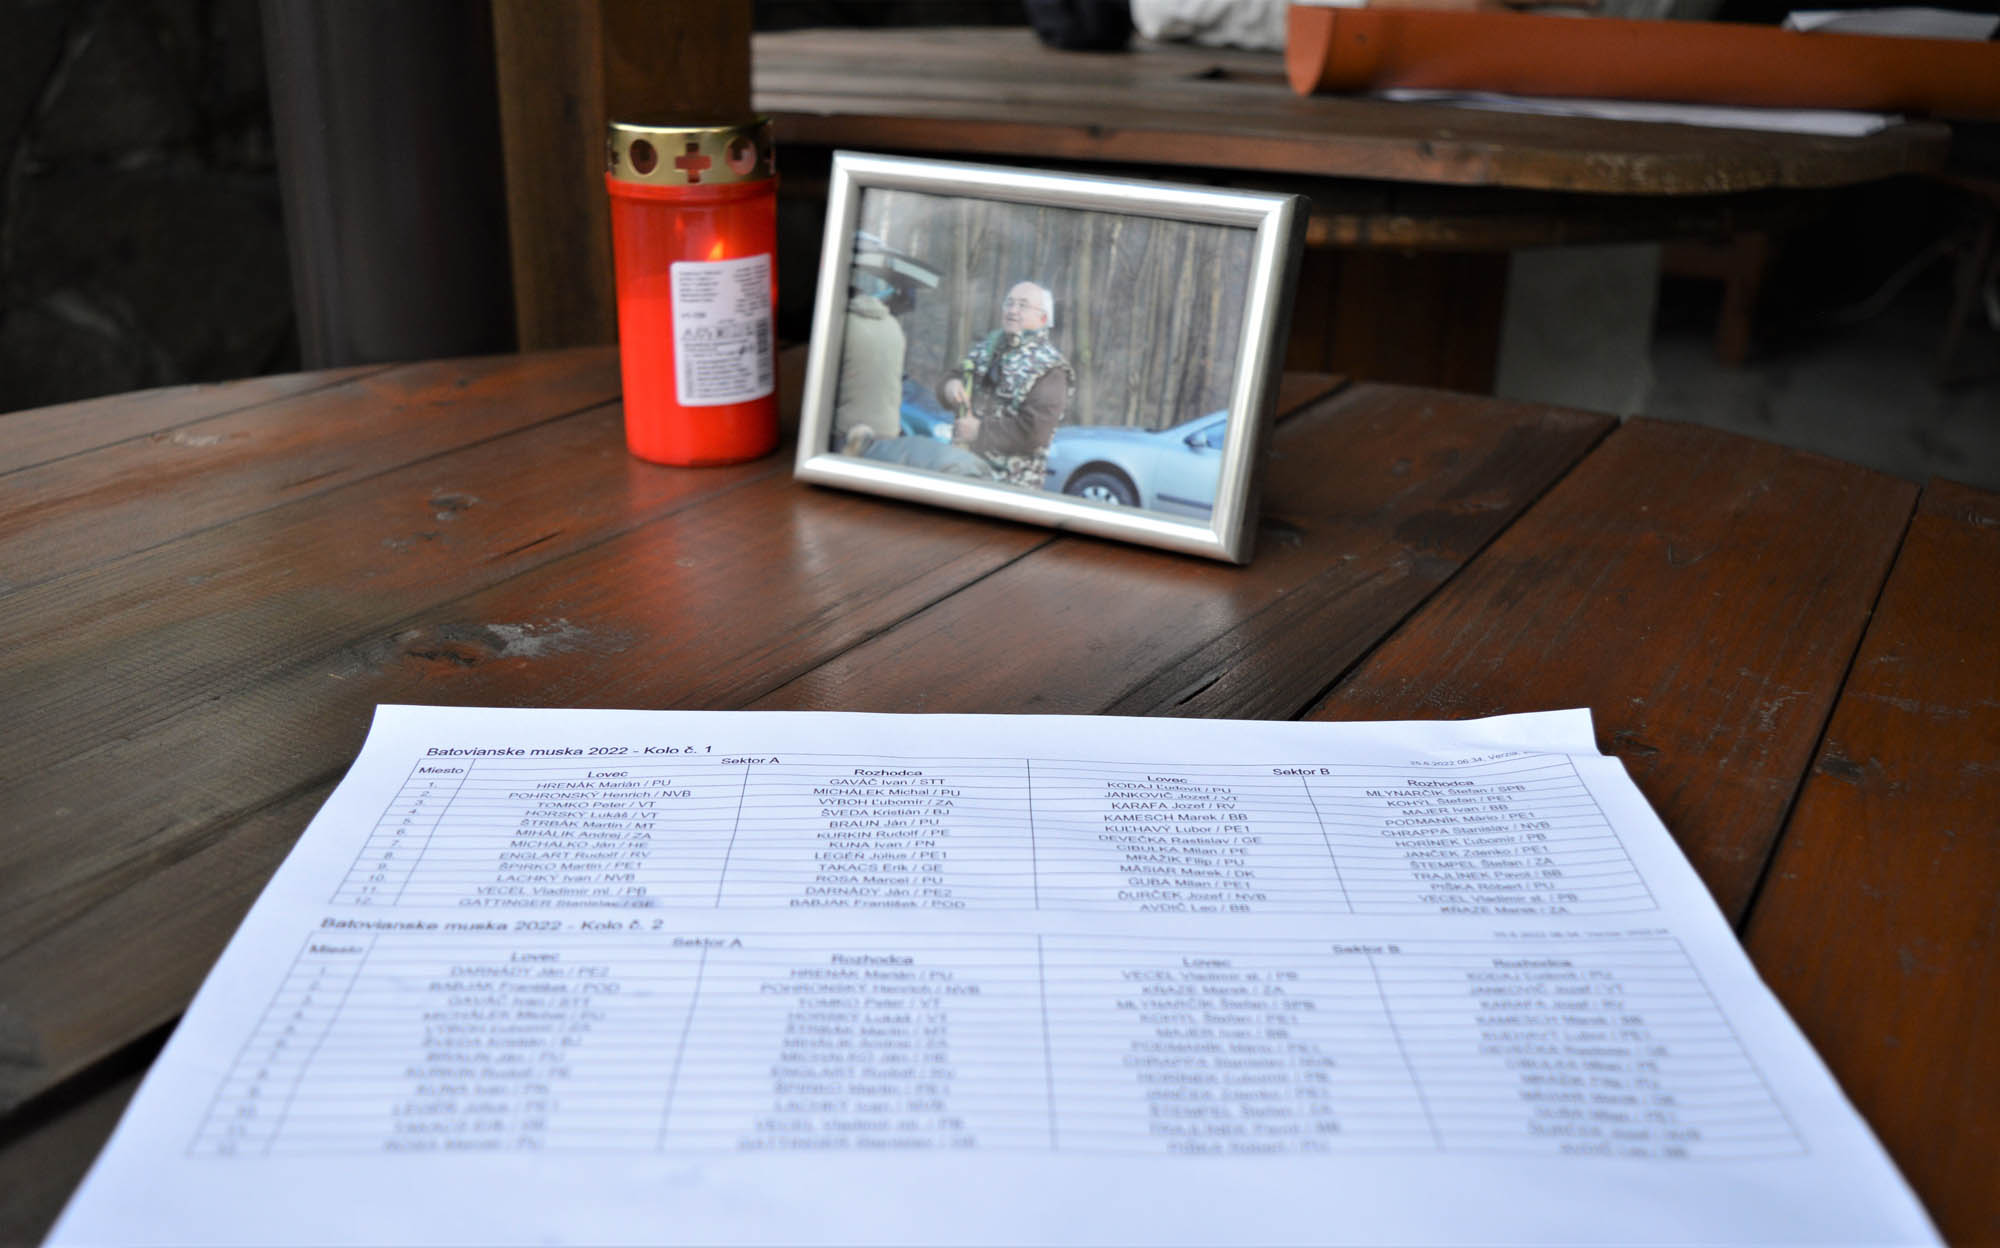 Batovianske muska 2022 - Kolo č. 1
25.6.2022 06:34, Verzia:
Miesto Sektor A Sektor B
Lovec Rozhodca Lovec Rozhodca
1. HRENÁK Marián / PU GAVÁČ Ivan / STT KODAJ Ľudovít / PU MLYNARČÍK Štefan / SPB
2. POHRONSKÝ Henrich / NVB MICHÁLEK Michal / PU JANKOVIČ Jozef / VT KOHÝL Štefan / PE1
3. TOMKO Peter / VT VÝBOH Ľubomír / ZA KARAFA Jozef / RV MAJER Ivan / BB
4. HORSKÝ Lukáš / VT ŠVEDA Kristián / BJ KAMESCH Marek / BB PODMANÍK Mário / PE1
5. ŠTRBÁK Martin / MT BRAUN Ján / PU KUĽHAVÝ Lubor / PE1 CHRAPPA Stanislav / NVB
6. MIHÁLIK Andrej / ZA KURKIN Rudolf / PE DEVEČKA Rastislav / GE HORÍNEK Ľubomír / PB
7. MICHALKO Ján / HE KUNA Ivan / PN CIBULKA Milan / PE JANČEK Zdenko / PE1
8. ENGLART Rudolf / RV LEGÉŇ Július / PE1 MRÁZIK Filip / PU ŠTEMPEL Štefan / ZA
9. ŠPIRKO Martin / PE1 TAKACS Erik / GE MÁSIAR Marek / DK TRAJLÍNEK Pavol / BB
10. LACHKÝ Ivan / NVB ROSA Marcel / PU GUBA Milan / PE1 PIŠKA Róbert / PU
11. VECEL Vladimír ml. / PB DARNÁDY Ján / PE2 ĎURČEK Jozef / NVB VECEL Vladimír st. / PB
12. GATTINGER Stanislav / GE BABJAK František / POD AVDIČ Leo / BB KŇAZE Marek / ZA
Batovianske muska 2022 - Kolo č. 2
Miesto Sektor A Sektor B
Lovec Rozhodca Lovec Rozhodca
1. DARNÁDY Ján / PE2 HRENÁK Marián / PU VECEL Vladimír st. / PB KODAJ Ľudovít / PU
2. BABJAK František / POD POHRONSKÝ Henrich / NVB KŇAZE Marek / ZA JANKOVIČ Jozef / VT
3. GAVÁČ Ivan / STT TOMKO Peter / VT MLYNARČÍK Štefan / SPB KARAFA Jozef / RV
4. MICHÁLEK Michal / PU HORSKÝ Lukáš / VT KOHÝL Štefan / PE1 KAMESCH Marek / BB
5. VÝBOH Ľubomír / ZA ŠTRBÁK Martin / MT MAJER Ivan / BB
6. ŠVEDA Kristián / BJ MIHÁLIK Andrej / ZA PODMANÍK Mário / PE1
7. BRAUN Ján / PU MICHALKO Ján / HE CHRAPPA Stanislav / NVB
8. KURKIN Rudolf / PE ENGLART Rudolf / RV HORÍNEK Ľubomír / PB
9. KUNA Ivan / PN ŠPIRKO Martin / PE1 JANČEK Zdenko / PE1
10. LEGÉŇ Július / PE1 LACHKÝ Ivan / NVB ŠTEMPEL Štefan / ZA
11. TAKACS Erik / GE VECEL Vladimír ml. / PB
12. ROSA Marcel / PU GATTINGER Stanislav / GE